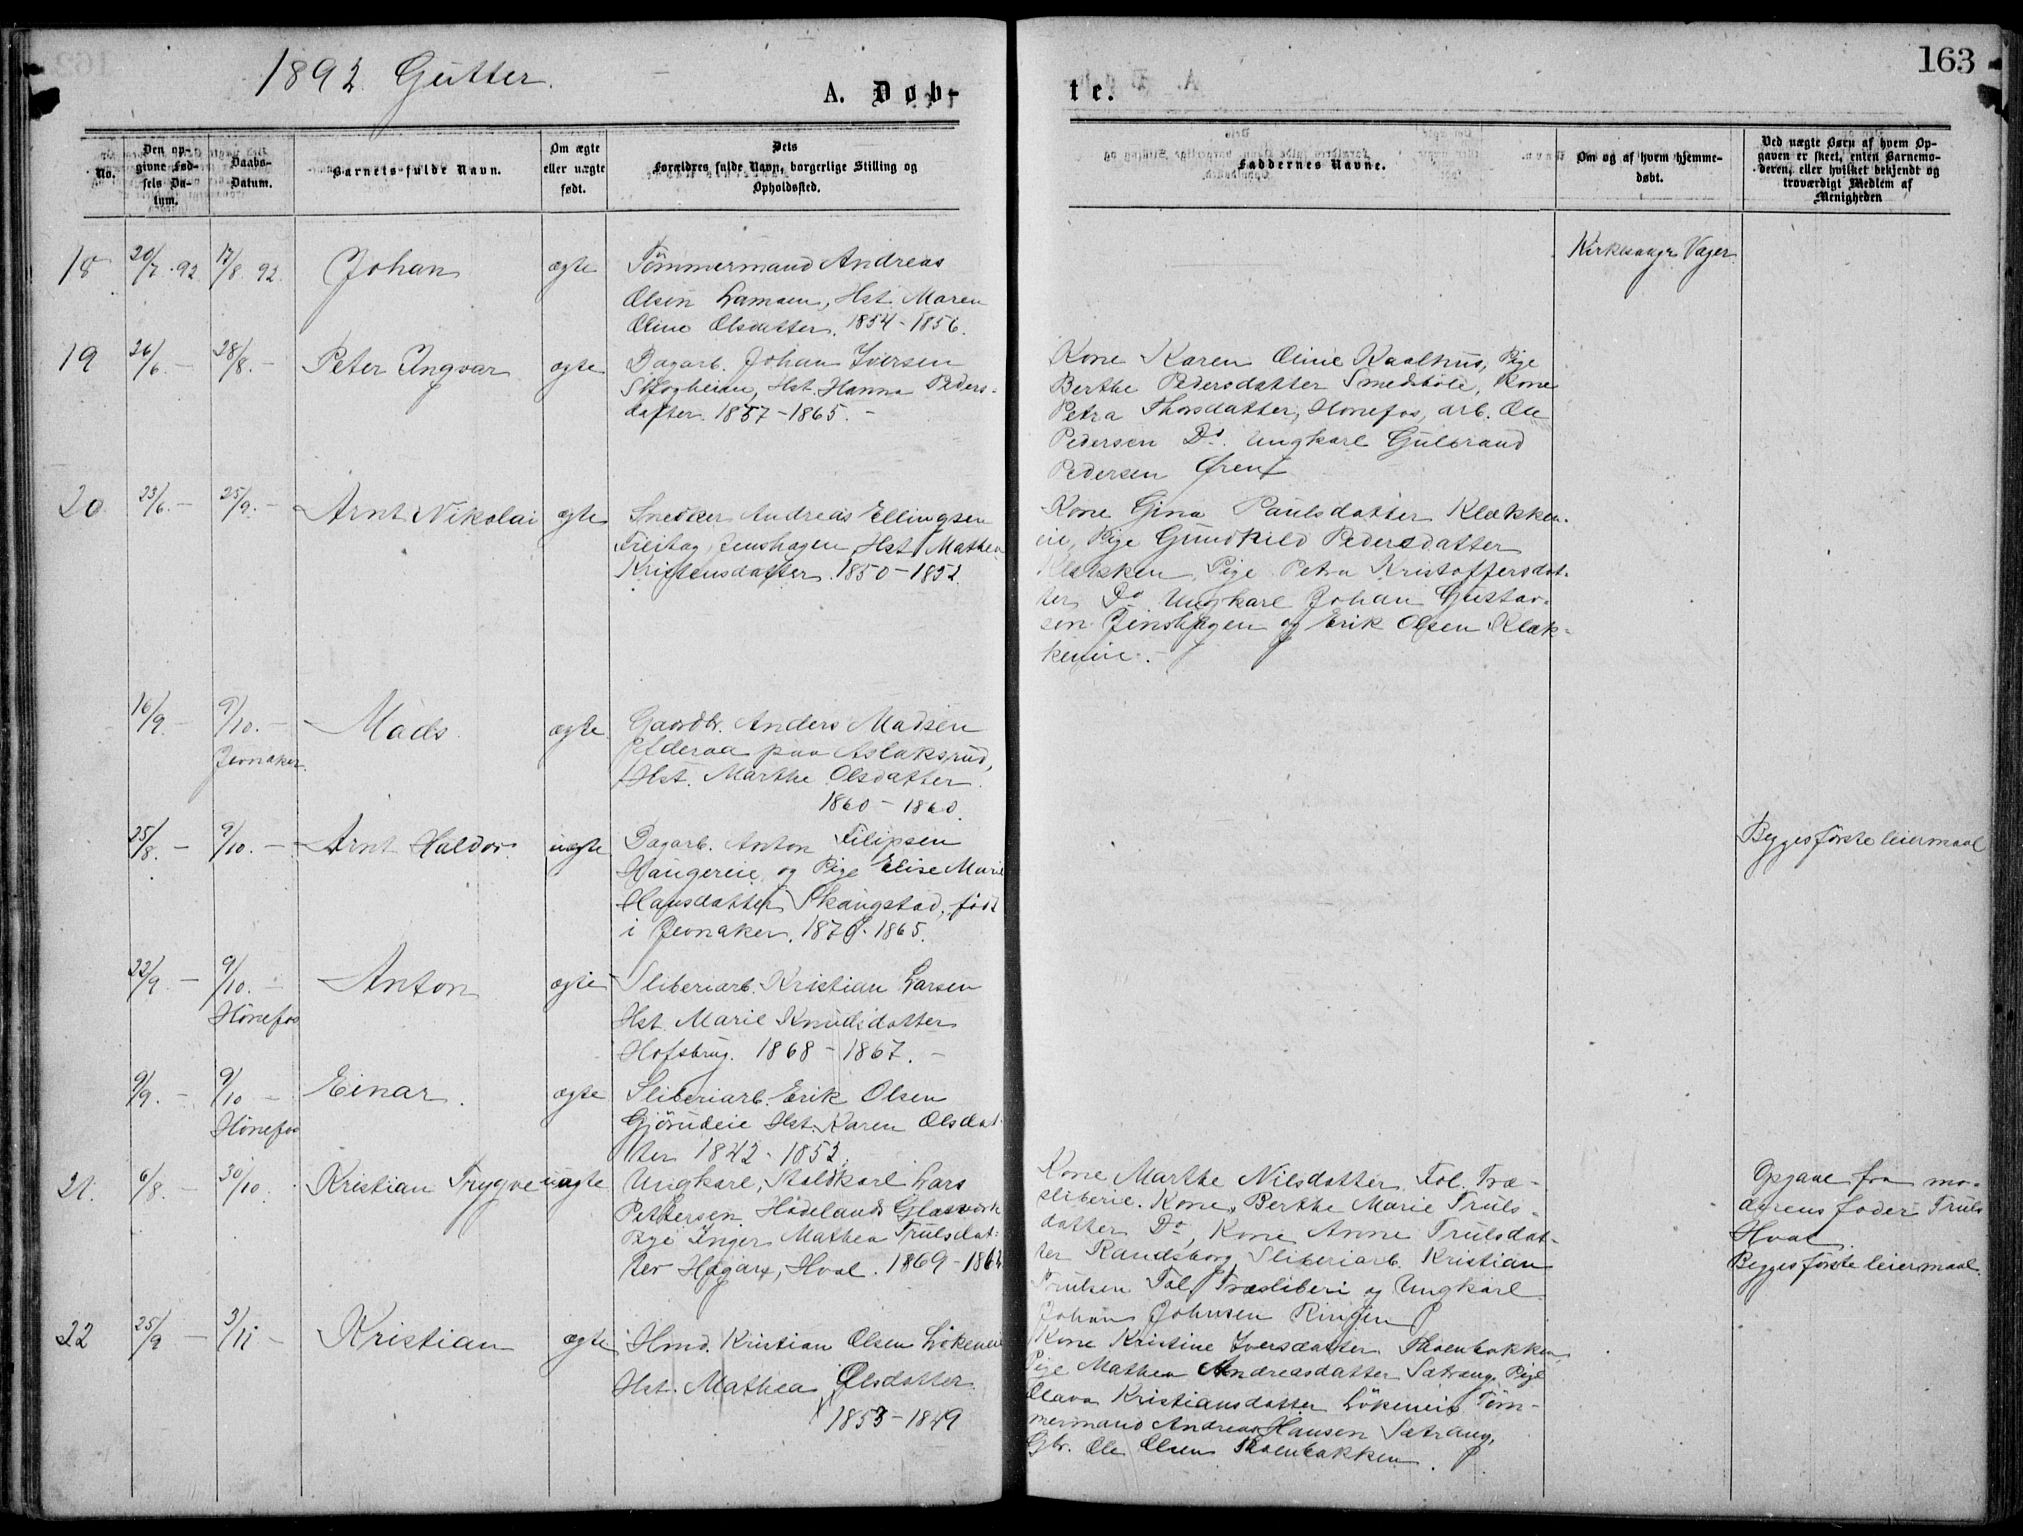 163
1892 Gutter.
A. Døb-
te.
No.
Den op-
givne Fød-
sels Da-
tum.
Daabs-
Datum.
Barnets fulde Navn.
Om ægte
eller uægte
født.
Dets
Forældres fulde Navn, borgerlige Stilling og
Opholdssted.
Faddernes Navne.
Om og af hvem hjemme-
døbt.
Ved uægte Børn af hvem Op-
gaven er skeet, enten Barnemo-
deren, eller hvilket bekjendt og
troværdigt Medlem af
Menigheden
18 20/7 92 17/8 92. Johan ægte Tömmermand Andreas
Olsen Hst. Maren
Oline Olsdatter. 1854-1856.
Kirkesangr. Vager
19 26/6. - 28/8. - Peter Ingvar ægte Dagarb. Johan Iversen
Skogheim, Hst. Hanna Peders-
datter. 1857-1865. -
Kone Karen Oline Kaalhus, Pige
Berthe Pedersdatter Smedsböle, Kone
Petra Thorsdatter, Hönefos, arb. Ole
Pedersen Do. Ungkarl Gulbrand
Pedersen Ören
20 23/6. - 25/9. - Arnt Nikolai ægte Snedker Andreas Ellingsen
Freitag, Jenshagen Hst. Mathea
Kristensdatter. 1850-1852.
Kone Gina Paulsdatter Klækken-
eie, Pige Gundhild Pedersdatter
Klækken, Pige Petra Kristoffersdat-
ter Do Ungkarl Johan Gustav-
sen Jenshagen og Erik Olsen Klæk-
keneie. -
16/9. - 9/10. - Mads ægte Gaardbr. Anders Madsen
Elderaa paa Aslaksrud,
Jevnaker. Hst. Marthe Olsdatter.
1860-1860.
25/8. - 9/10. - Arnt Haldor uægte Dagarb. Anton Filipsen
Haugereie, og Pige Elise Marie
Hansdatter Skaugstad, født
i Jevnaker. 1870-1865.
Begges förste leiermaal
22/9. - 9/10. - Anton ægte Sliberiarb. Kristian Larsen
Hönefos Hst. Marie Knudsdatter
Hofsbrug. 1868-1867. -
9/9. - 9/10 - Einar. ægte Sliberiarb. Erik Olsen
Hönefos Gjörudeie Hst. Karen Olsdat-
ter 1842-1852.
21. 6/8. - 30/10. Kristian Trygve uægte Ungkarl, Staldkarl Lars
Pettersen Hadelands Glasværk
Pige Inger Mathea Trulsdat-
ter Hval. 1869-
Kone Marthe Nilsdatter, Fol. Træ-
sliberie. Kone, Berthe Marie Truls-
datter Do, Kone Anne Trulsdat-
ter Randsborg Sliberiarb. Kristian
Trulsen Fol Træsliberi og Ungkarl
Johan Johnsen Ringen
Opgave fra mo-
derens fader Truls
Hval.
Begges förste leiermaal.
22 25/9 - 3/11 - Kristian ægte Hmd. Kristian Olsen Lökeneie
Hst. Mathea Olsdatter
1853-1849
Kone Kristine Iversdatter
Pige Mathea Andreasdatter Sætrang, Pige
Olava Kristiansdatter Lökeneie Töm-
mermand Andreas Hansen Sætrang,
Gbr. Ole Olsen